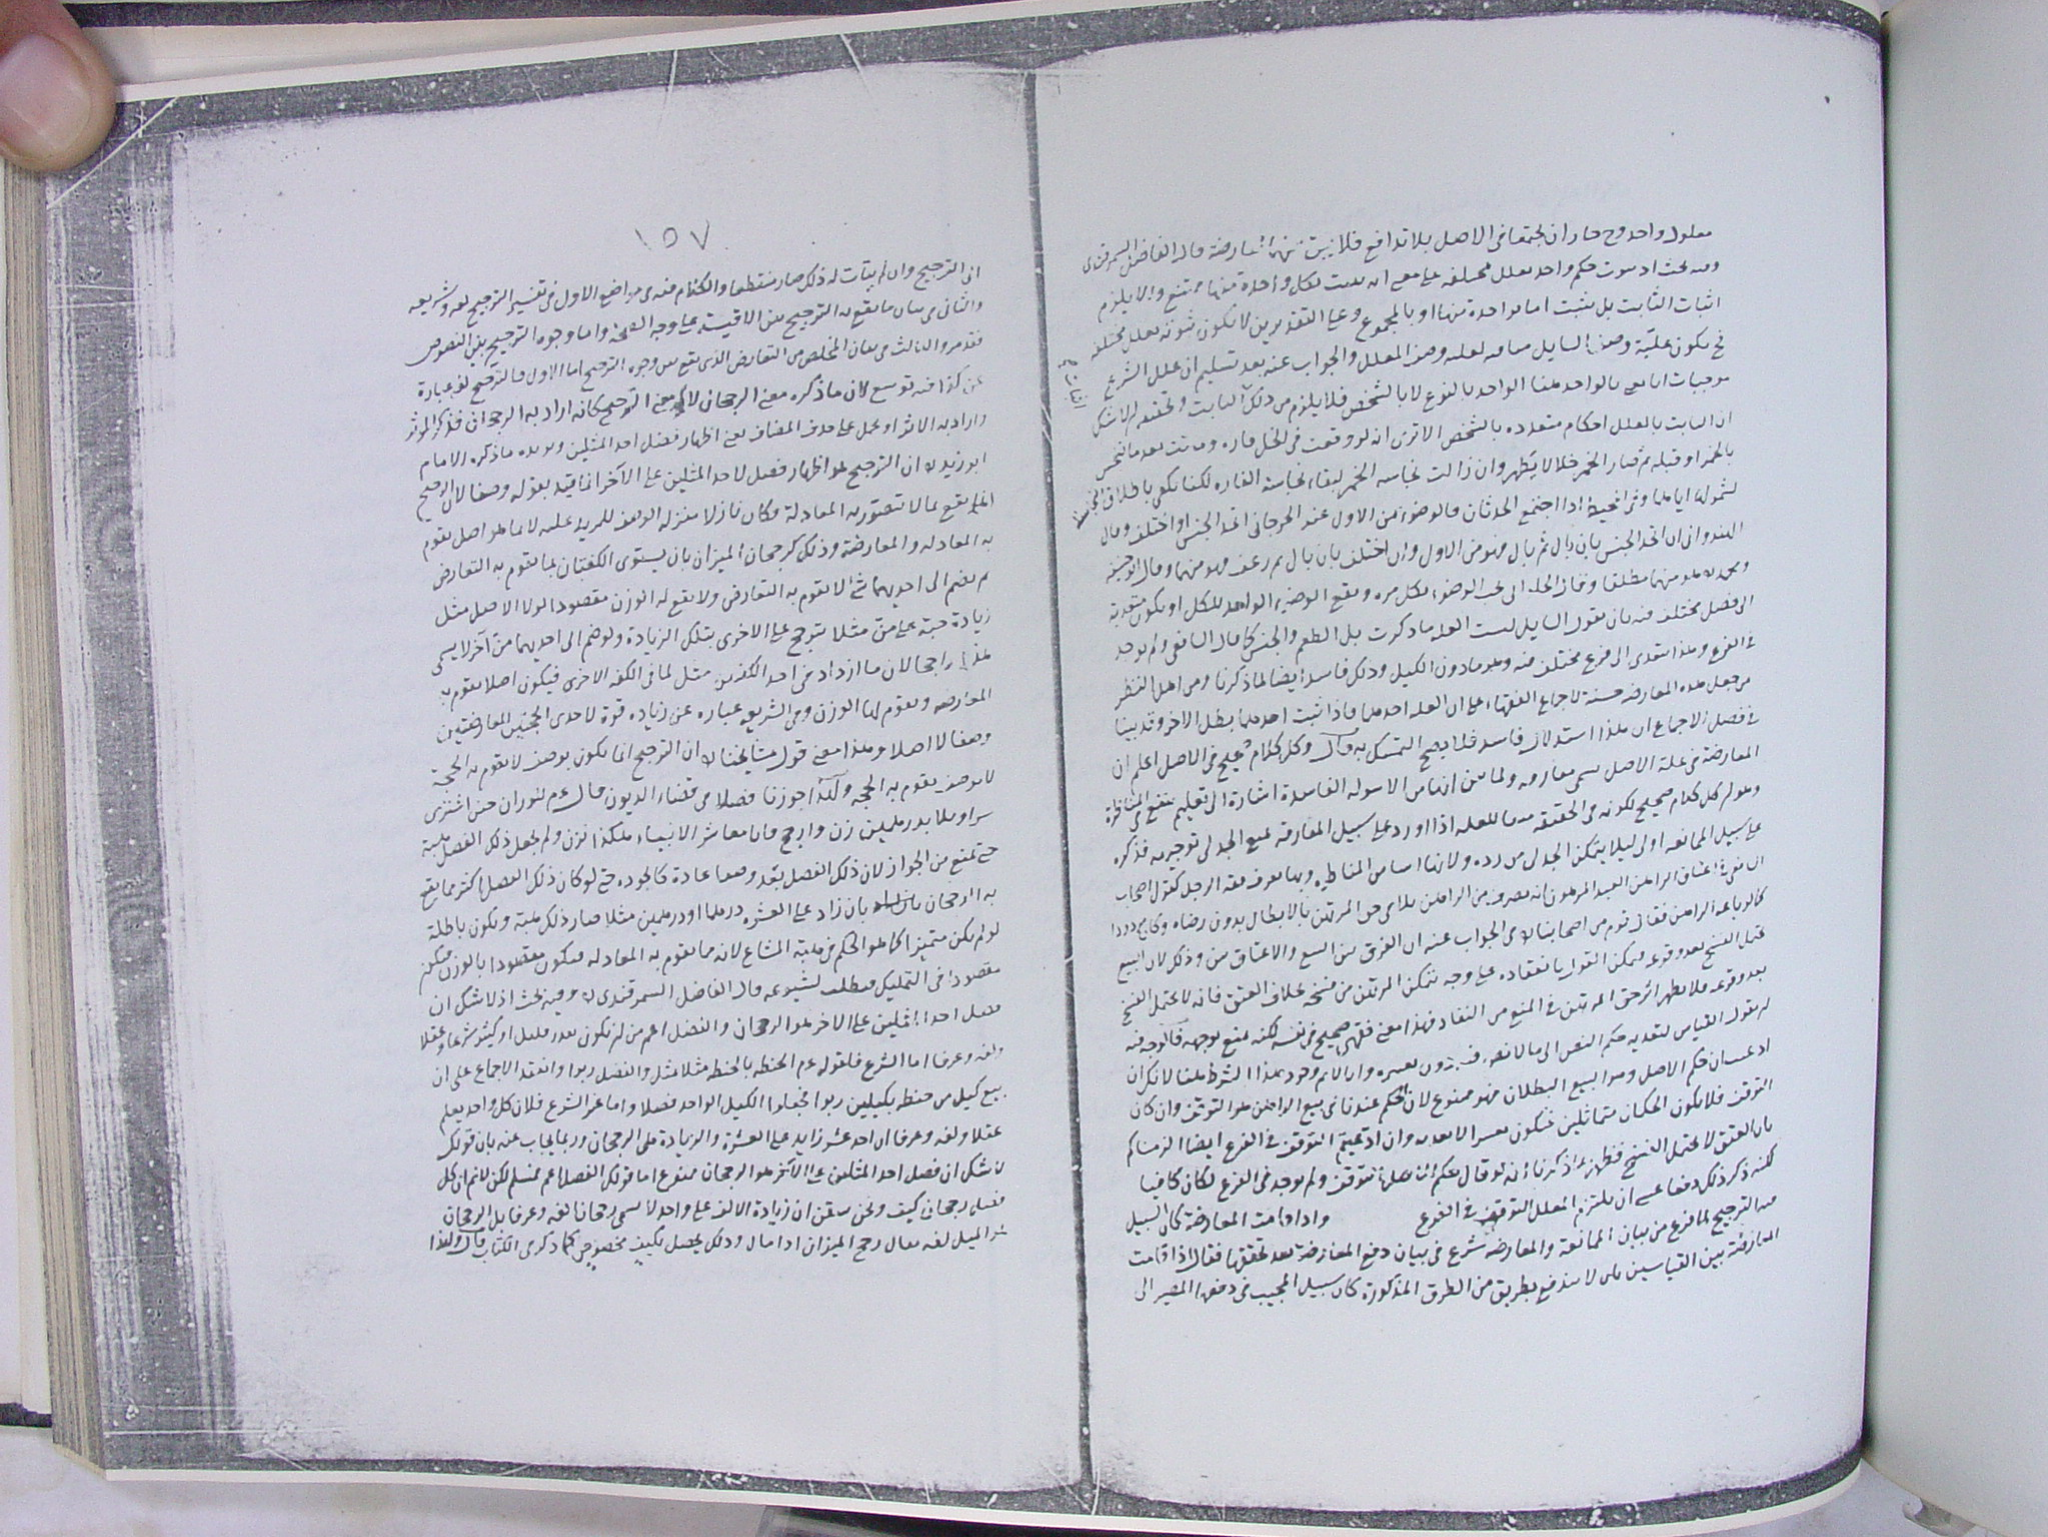 معلول واحد وح جاز ان يجتمعا في الاصل بلا تدافع فلا يثبت بينهما معارضة قال الفاضل السمرقندي
وفيه بحث اذ ثبوت حكم واحد بعلل مختلفة على معنى انه يثبت بكل واحدة منها ممتنع والا يلزم
اثبات الثابت بل يثبت اما بواحدة منها او بالمجموع وعلى التقديرين لا يكون ثبوته بعلل مختلفة
فح يكون علية وصف السايل منافية لعلية وصف المعلل والجواب عنه بعد تسليم ان علل الشرع
موجبات انا نعني بالواحد هنا الواحد بالنوع لا بالشخص فلا يلزم من ذلك
ان الثابت بالعلل احكام متعدده بالشخص الا ترى انه لو وقعت في الخل فاره وماتت بعد ما تنجس
بالخمر او قبله ثم صار الخمر خلا لا يطهر وان زالت نجاسه الخمر لبقاء نجاسة الفاره لكنا نكتفي باطلاق
لشمولها اياهما وفي المحيط اذا اجتمع الحدثان فالوضوء من الاول عند الجرجاني اتحد الجنس او اختلف وقال
الهندواني ان اتحد الجنس بان بال ثم بال فهو من الاول وان اختلف بان بال ثم رعف فهو منهما وقال ابو حنيفة
الى فصل مختلف فيه بان يقول السايل ليست العلة ما ذكرت بل الطعم والجنس كما قال الشافعي ولم يوجد
في الفرع وهذا يتعدى الى فرع مختلف فيه وهو ما دون الكيل وذلك فاسد ايضا لما ذكرنا ومن اهل النظر
من جعل هذه المعارضه حسنة لاجماع الفقهاء على ان العله احدهما فاذا ثبت احدهما بطل الآخر وقد بينا
في فصل الاجماع ان هذا استدلال فاسد فلا يصح التمسك به قال وكل كلام صحيح في الاصل اعلم ان
المعارضة في علة الاصل تسمى مفارقه ولما بين انها من الاسولة الفاسدة اشارة الى تعليم ينتفع في المناظرة
وهو ان كل كلام صحيح لكونه في الحقيقه منعا للعله اذا اورد على سبيل المفارقه يمنع الجدلي توجيهه فذكره
على سبيل الممانعه اولى ليلا يتمكن الجدلي من رده ولانها اساس المناظره وبها يعرف فقه الرجل كقول اصحاب
الشافعي في اعتاق الراهن العبد المرهون انه تصرف من الراهن يلاقي حق المرتهن بالابطال بدون رضاه وكان مردودا
كما لو باعه الراهن فقال قوم من اصحابنا في الجواب عنه ان الفرق بين البيع والاعتاق بين وذلك لان البيع
يحتمل الفسخ بعد وقوعه فيمكن القول بانعقاده على وجه يتمكن المرتهن من فسخه بخلاف العتق فانه لا يحتمل الفسخ
بعد وقوعه فلا يظهر اثر حق المرتهن في المنع من النفاذ فهذا معنى فقهي صحيح في نفسه لكنه منع توجيهه فالوجه فيه
ان يقول القياس لتعديه حكم النص الى ما لا نص فيه دون تغييره وانا لا نسلم وجود هذا الشرط هنا لانك ان
ادعيت ان حكم الاصل وهو البيع البطلان فهو ممنوع لان الحكم عندنا في بيع الراهن هو التوقف وان كان
التوقف فلا يكون الحكمان متماثلين فيكون تغييرا لا تعدية وان ادعيتم التوقف في الفرع ايضا الزمناكم
بان العتق لا يحتمل الفسخ فظهر بما ذكرنا انه لو قال حكم الاصل التوقف ولم يوجد في الفرع لكان كافيا
لكنه ذكر ذلك دفعا عسى ان يلتزم المعلل التوقف في الفرع واذا قامت المعارضة كان السبيل
فيه الترجيح لما فرغ من بيان الممانعة والمعارضه شرع في بيان دفع المعارضة بعد تحققها فقال اذا قامت
المعارضة بين القياسين بان لا يندفع بطريق من الطرق المذكورة كان سبيل المجيب في دفعها المصير الى
١٥٧
الى الترجيح وان لم يتأت له ذلك صار منقطعا والكلام فيه في مواضع الاول في تفسير الترجيح لغه وشريعه
والثاني في بيان ما يقع به الترجيح بين الاقيسة على وجه الصحه واما وجوه الترجيح بين النصوص
فقد مر والثالث في بيان المخلص من التعارض الذي يقع بين وجوه الترجيح اما الاول فالترجيح لغه عبارة
عن كذا فيه توسع لان ما ذكره معنى الرجحان لا معنى الترجيح كانه اراد به الرجحان فذكر المؤثر
واراد به الاثر او عمل على حذف المضاف يعني اظهار فضل احد المثلين ويويده ما ذكره الامام
ابو زيد ان الترجيح لهو اظهار فضل لاحد المثلين على الآخر انما قيد بقوله وصفا لان الترجيح
انما يقع بما لا يتصور به المعادلة فكان نازلا منزله الوصف للمزيد عليه لا بما هو اصل يقوم
به المعادله والمعارضة وذلك كرجحان الميزان بان يستوي الكفتان بما يقوم به التعارض
ثم ينضم الى احديهما شئ لا يقوم به التعارض ولا يقع له الوزن مقصودا لولا الاصل مثل
زيادة حبة على من مثلا يترجح على الاخرى بتلك الزيادة ولو ضم الى احديهما من آخر لا يسمى
هذا راجحا لان ما ازداد في احد الكفتين مثل لما في الكفه الاخرى فيكون اصلا يقوم به
المعارضه ويقوم لها الوزن وفي الشريعه عباره عن زياده قوة لاحدى الحجتين المعارضتين
وصفا لا اصلا وهذا معنى قول مشايخنا ان الترجيح انما يكون بوصف لا يقوم به الحجة
لا بوصف يقوم به الحجه ولهذا جوزنا فضلا في قضاء الديون قال عم للوزان حين اشترى
سراويلا بدرهمين زن وارجح فانا معاشر الانبياء هكذا نزن ولم يجعل ذلك الفضل هبة
حتى تمنع من الجواز لان ذلك الفضل يعد وصفا عادة كالجوده حتى لو كان ذلك الفضل اكثر مما يقع
به الرجحان بان زاد على العشره درهما او درهمين مثلا صار ذلك هبة ويكون باطلة
لو لم يكن متميزا كما هو الحكم في هبة المشاع لانه مما يقوم به المعادله فيكون مقصودا بالوزن فيكون
مقصودا في التمليك فبطلت لشيوعه قال الفاضل السمرقندي وفيه بحث اذ لا شك ان
فضل احد المثلين على الآخر هو الرجحان والفضل اعم من ان يكون بقدر قليل او كثير شرعا وعقلا
ولغه وعرفا اما الشرع فلقوله عم الحنطه بالحنطه مثلا بمثل والفضل ربوا وانعقد الاجماع على ان
بيع كيل من حنطه بكيلين ربوا فجعلوا الكيل الواحد فضلا واما غير الشرع فلان كل واحد يعلم
عقلا ولغه وعرفا ان احد عشر زايد على العشرة والزيادة هي الرجحان وربما يجاب عنه بان قولك
لا شك ان فضل احد المثلين على الآخر هو الرجحان ممنوع اما قولك الفضل اعم فمسلم لكن لا نسلم ان كل
فضل رجحان كيف ونحن نتيقن ان زيادة الالف على واحد لا يسمى رجحانا لغه وعرفا بل الرجحان
هو الميل لغه يقال رجح الميزان اذا مال وذلك يحصل بكيف مخصوص كما ذكر في الكتاب قال ولهذا